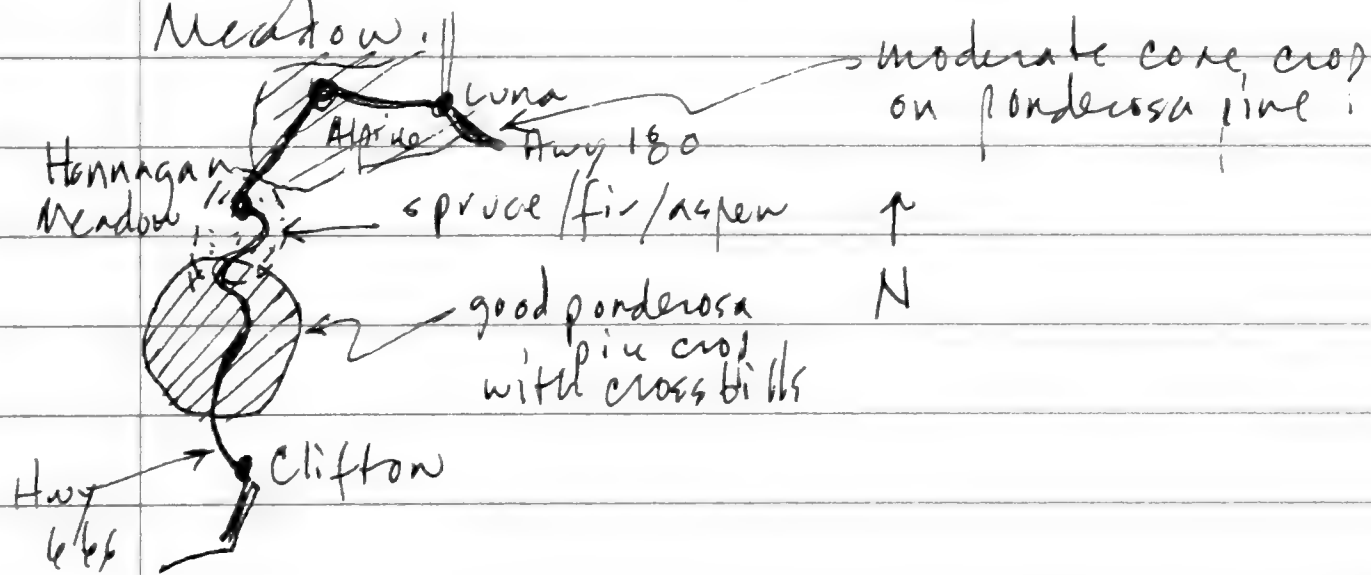 Meadow.
moderate cone crop
on ponderosa pine.
Luna
Alpine
Hwy 180
Hannagan
Meadow
spruce/fir/aspen
N
good ponderosa
pine crop
with crossbills
Clifton
Hwy
666